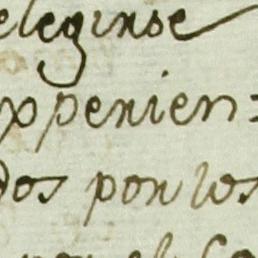 elegirse
xperien=
dos por los